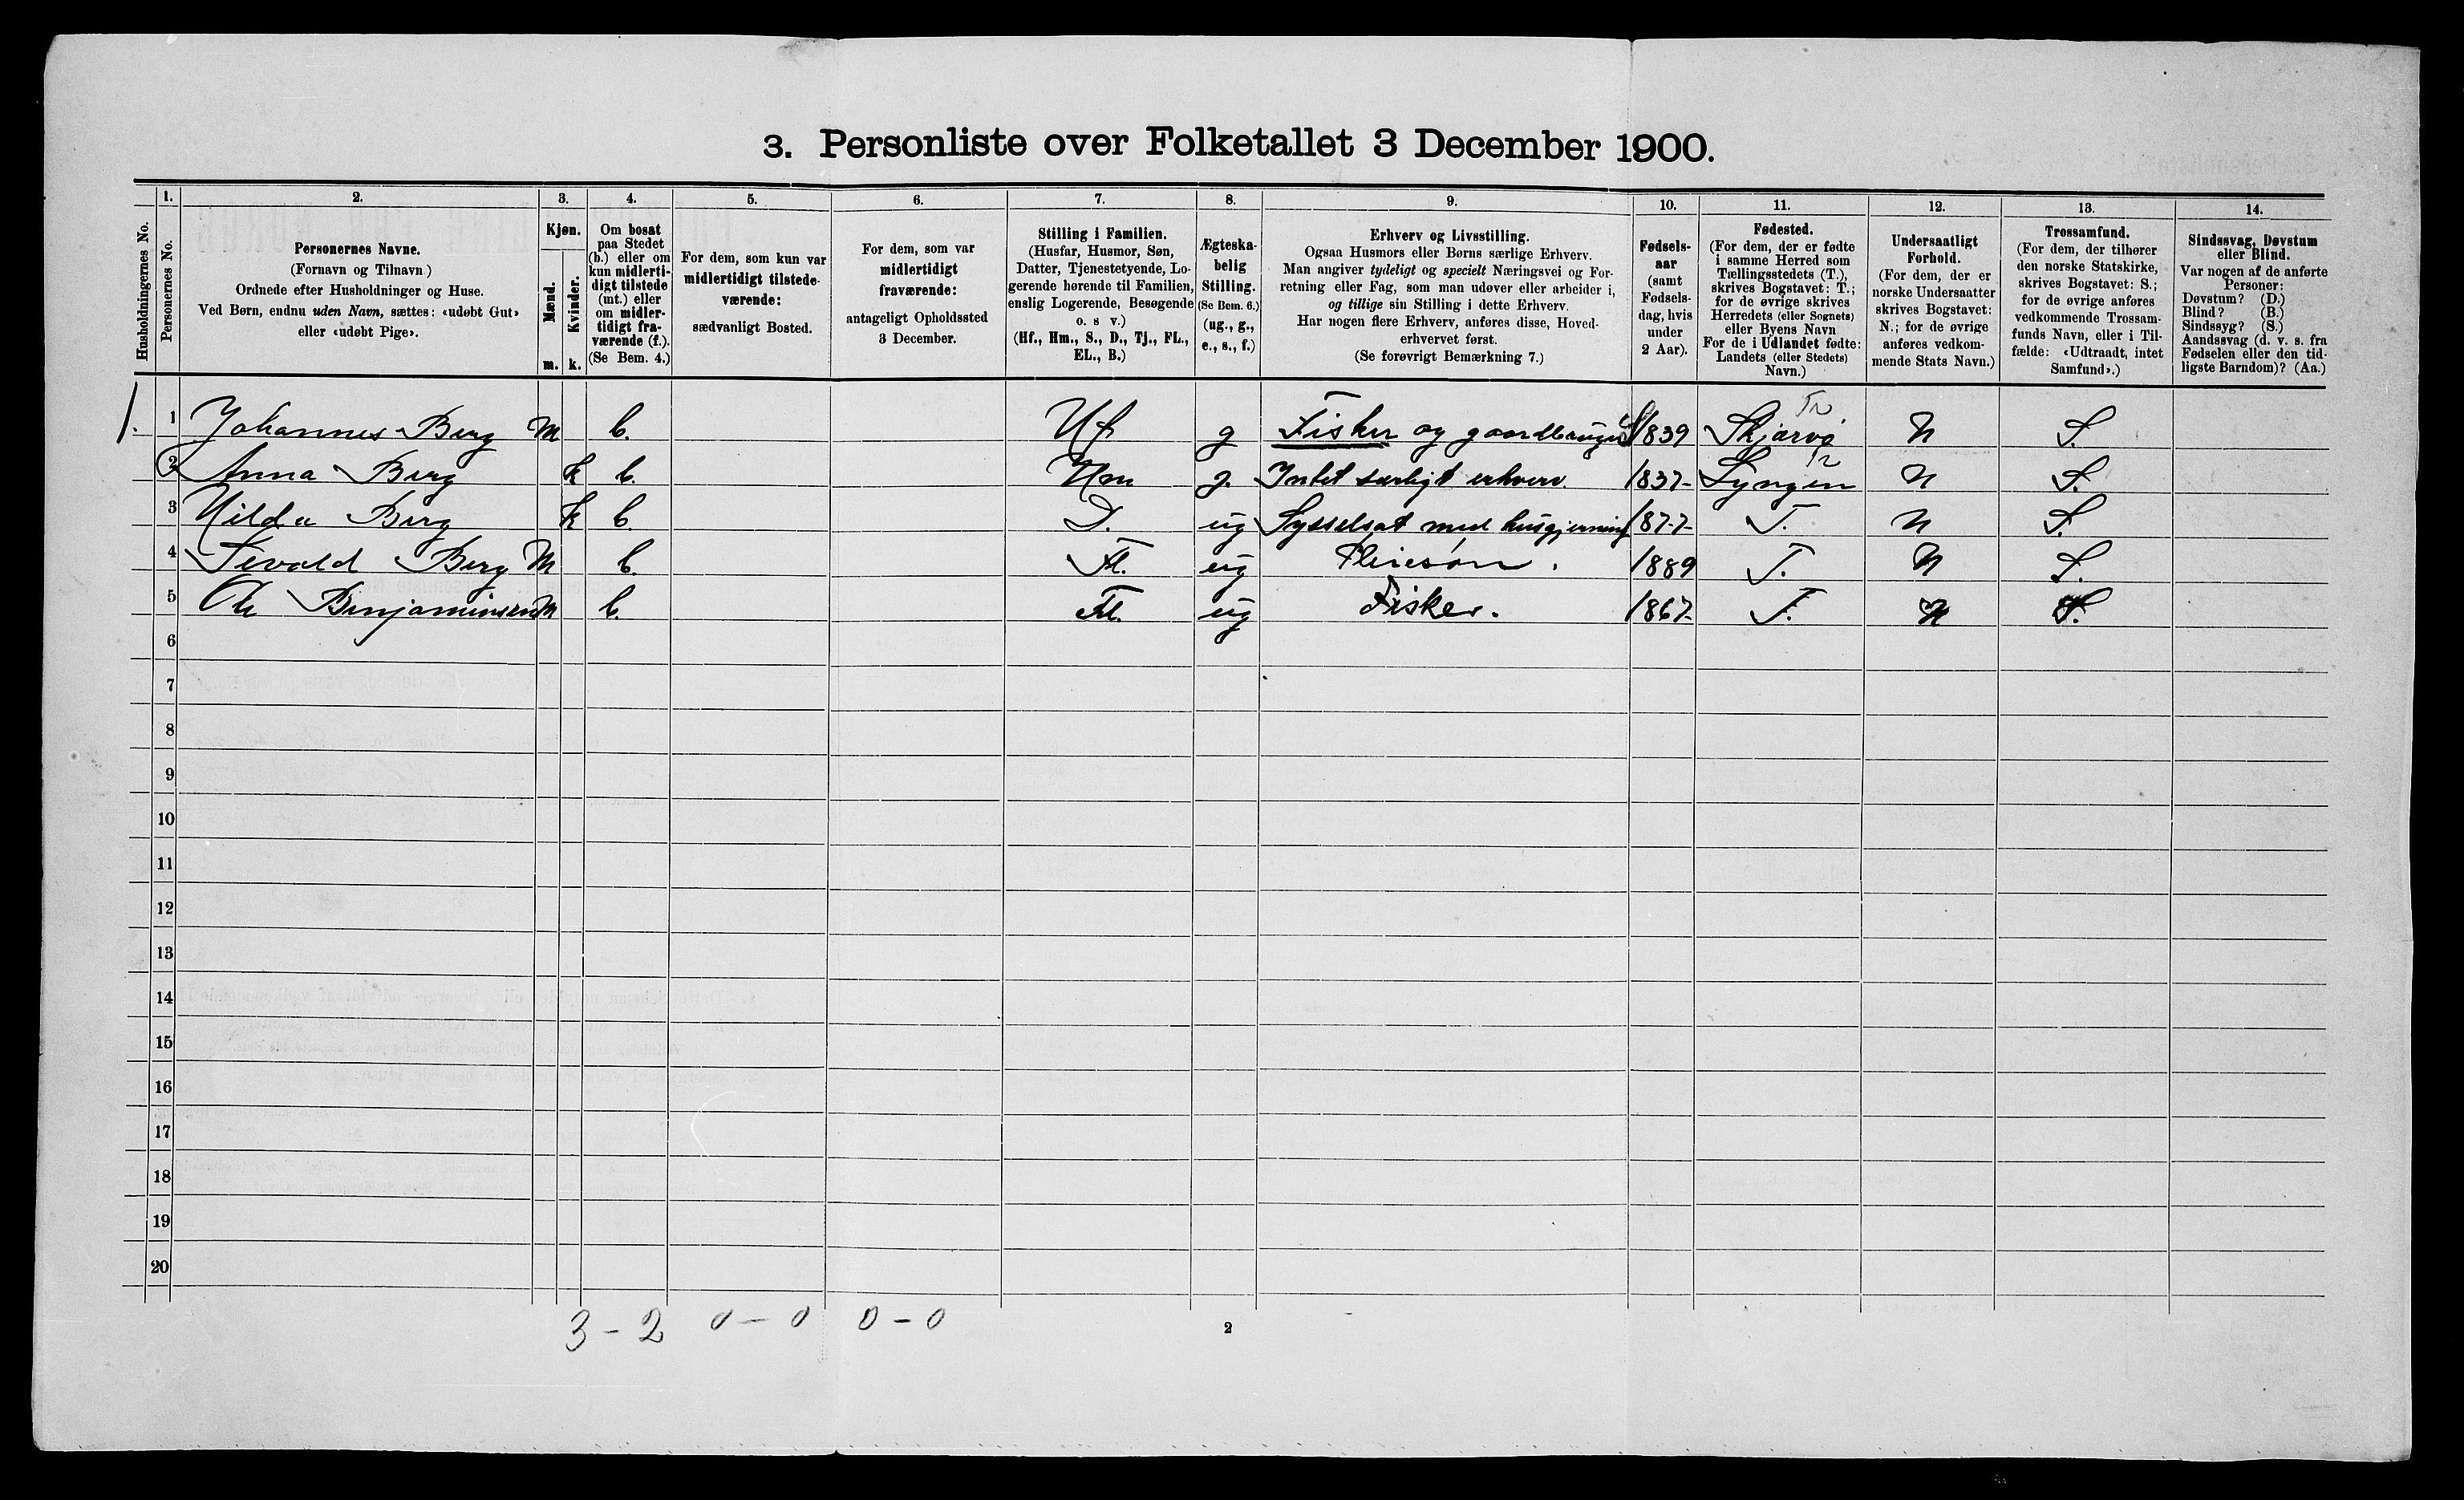 3. Personliste over Folketallet 3 December 1900.
Husholdningernes No.
1.
Personernes No.
2.
Personernes Navne.
(Fornavn og Tilnavn)
Ordnede efter Husholdninger og Huse.
Ved Børn, endnu uden Navn, sættes: «udøbt Gut»
eller «udøbt Pige».
3.
Kjøn.
Mænd.
Kvinder.
m. k.
4.
Om bosat
paa Stedet
(b.) eller om
kun midlerti-
digt tilstede
(mt.) eller
om midler-
tidigt fra-
værende (f.).
(Se Bem. 4.)
5.
For dem, som kun var
midlertidigt tilstede-
værende:
sædvanligt Bosted.
6.
For dem, som var
midlertidigt
fraværende:
antageligt Opholdssted
3 December.
7.
Stilling i Familien.
(Husfar, Husmor, Søn,
Datter, Tjenestetyende, Lo-
gerende hørende til Familien,
enslig Logerende, Besøgende
o. s v.)
(Hf., Hm., S., D., Tj., FL.,
EL., B.)
8.
Ægteska-
belig
Stilling.
(Se Bem. 6.)
(ug., g.,
e., s., f.)
9.
Erhverv og Livsstilling.
Ogsaa Husmors eller Børns særlige Erhverv.
Man angiver tydeligt og specielt Næringsvei og For-
retning eller Fag, som man udøver eller arbeider i,
og tillige sin Stilling i dette Erhverv.
Har nogen flere Erhverv, anføres disse, Hoved-
erhvervet først.
(Se forøvrigt Bemærkning 7.)
10.
Fødsels-
aar
(samt
Fødsels-
dag, hvis
under
2 Aar).
11.
Fødested.
(For dem, der er fødte
i samme Herred som
Tællingsstedets (T.),
skrives Bogstavet: T.;
for de øvrige skrives
Herredets (eller Sognets)
eller Byens Navn
For de i Udlandet fødte:
Landets (eller Stedets)
Navn.)
12.
Undersaatligt
Forhold.
(For dem, der er
norske Undersaatter
skrives Bogstavet:
N.; for de øvrige
anføres vedkom-
mende Stats Navn.)
13.
Trossamfund.
(For dem, der tilhører
den norske Statskirke,
skrives Bogstavet: S.;
for de øvrige anføres
vedkommende Trossam-
funds Navn, eller i Til-
fælde: «Udtraadt, intet
Samfund».)
14.
Sindssvag, Døvstum
eller Blind.
Var nogen af de anførte
Personer:
Døvstum? (D.)
Blind? (B.)
Sindssyg? (S.)
Aandssvag (d. v. s. fra
Fødselen eller den tid-
ligste Barndom)? (Aa.)
1. 1 Johannes Berg M b. Hf g Fisker og gaardbruger 1839 Skjærvø Tr N S.
2 Anna Berg K b. Hm g. Intet særligt erhverv. 1837- Lyngen Tr N S.
3 Hilda Berg K b. D. ug Sysselsat med husgjerning 1877- T. N S.
4 Sevald Berg M b. Fl. ug Pleiesøn. 1889 T. N S.
5 Ole Benjaminsen M b. Fl. ug Fisker. 1867- T. N S.
6
7
8
9
10
11
12
13
14
15
16
17
18
19
20
3 - 2 0 - 0 0 - 0
2